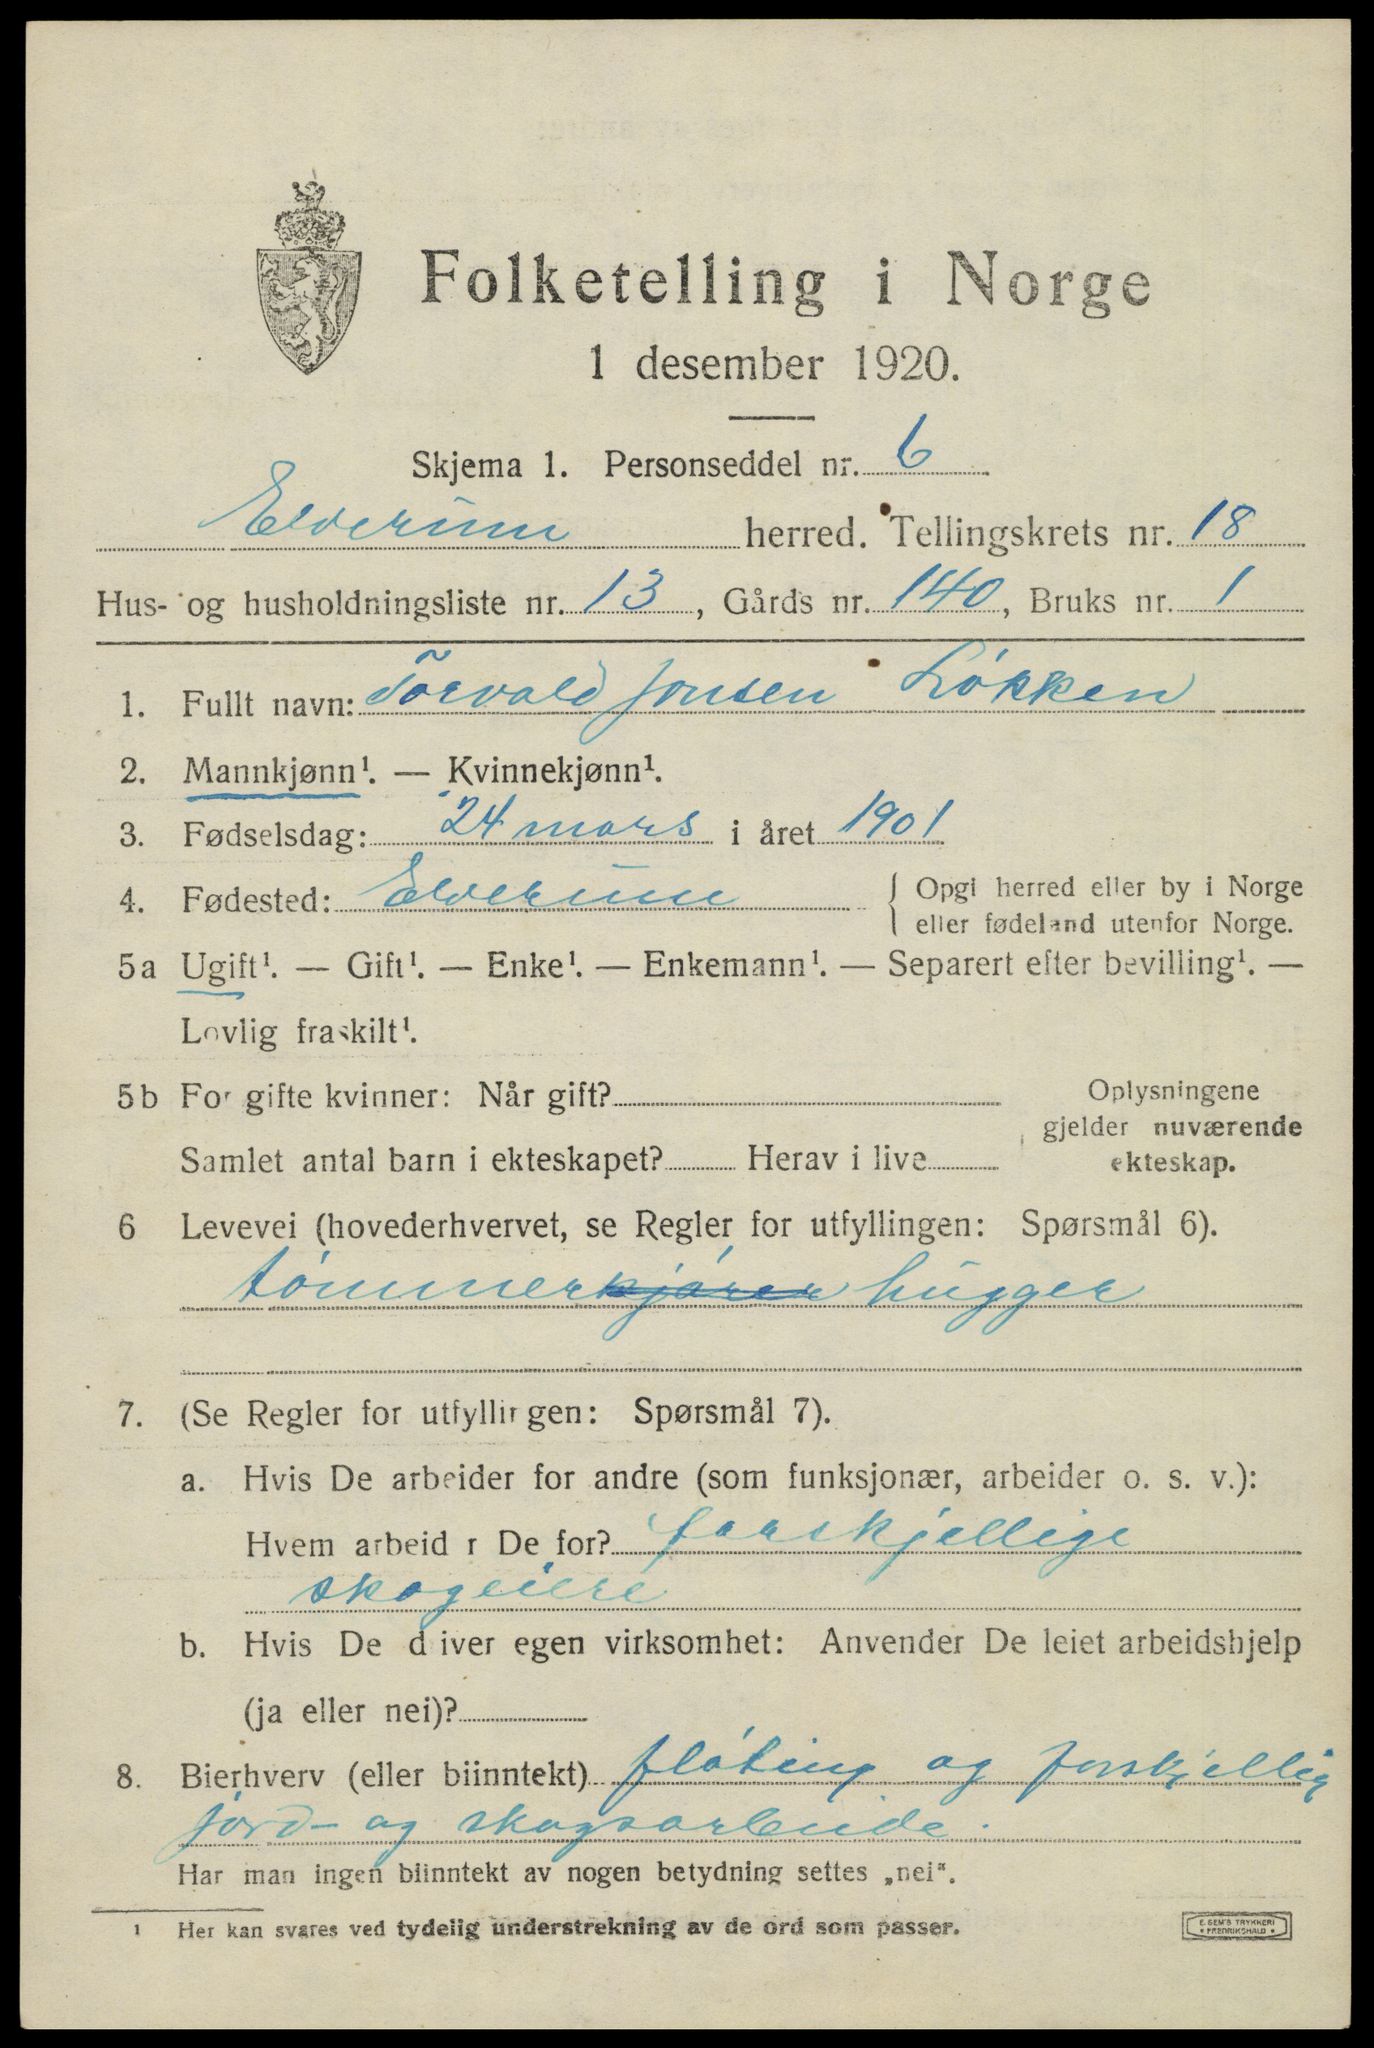 Folketelling i Norge
1 desember 1920.
Skjema 1. Personseddel nr. 6
Elverum herred. Tellingskrets nr. 18
Hus- og husholdningsliste nr. 13, Gårds nr. 140, Bruks nr. 1
1. Fullt navn: Torvald Jonsen Løkken
2. Mannkjønn¹. — Kvinnekjønn¹.
3. Fødselsdag: 24 mars i året 1901
4. Fødested: Elverum { Opgi herred eller by i Norge
eller fødeland utenfor Norge.
5a Ugift¹. — Gift¹. — Enke¹. — Enkemann¹. — Separert efter bevilling¹. —
Lovlig fraskilt¹.
5b For gifte kvinner: Når gift? Oplysningene
gjelder nuværende
Samlet antal barn i ekteskapet? Herav i live ekteskap.
6 Levevei (hovederhvervet, se Regler for utfyllingen: Spørsmål 6).
tømmerkjører hugger
7. (Se Regler for utfyllingen: Spørsmål 7).
a. Hvis De arbeider for andre (som funksjonær, arbeider o. s. v.):
Hvem arbeid r De for? forskjellige
skogeiere
b. Hvis De d iver egen virksomhet: Anvender De leiet arbeidshjelp
(ja eller nei)?
8. Bierhverv (eller biinntekt) fløting og forskjellig
jord- og skogsarbeide.
Har man ingen biinntekt av nogen betydning settes „nei".
¹ Her kan svares ved tydelig understrekning av de ord som passer.
E. SEM'S TRYKKERI
FREDRIKSHALD